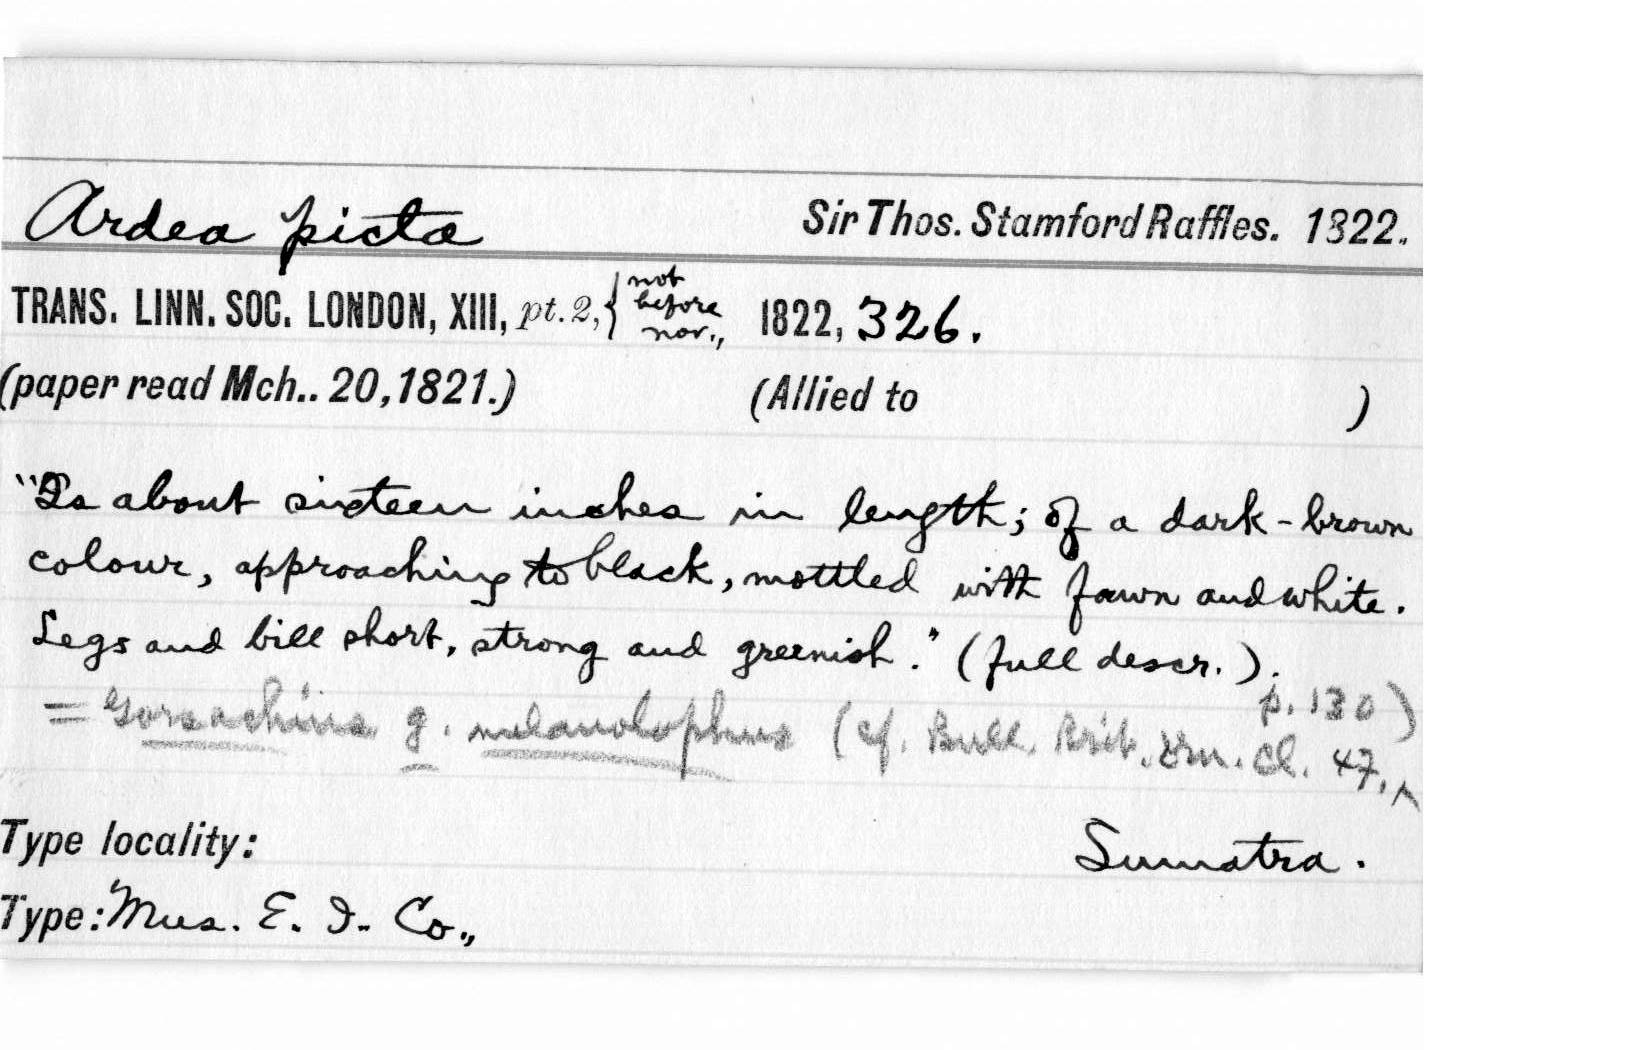 Ardea picta Sir Thos. Stamford Raffles. 1822.
TRANS. LINN. SOC. LONDON, XIII, pt. 2, { not before nov., 1822, 326.
(paper read Mch.. 20, 1821.) (Allied to )
"Is about sixteen inches in length; of a dark-brown
colour, approaching to black, mottled with fawn and white.
Legs and bill short, strong and greenish." (full descr.).
= Gorsachius g. melanolophus (cf. Bull. Brit. Orn. Cl. 47, ^ p. 130)
Type locality: Sumatra.
Type: Mus. E. I. Co.,